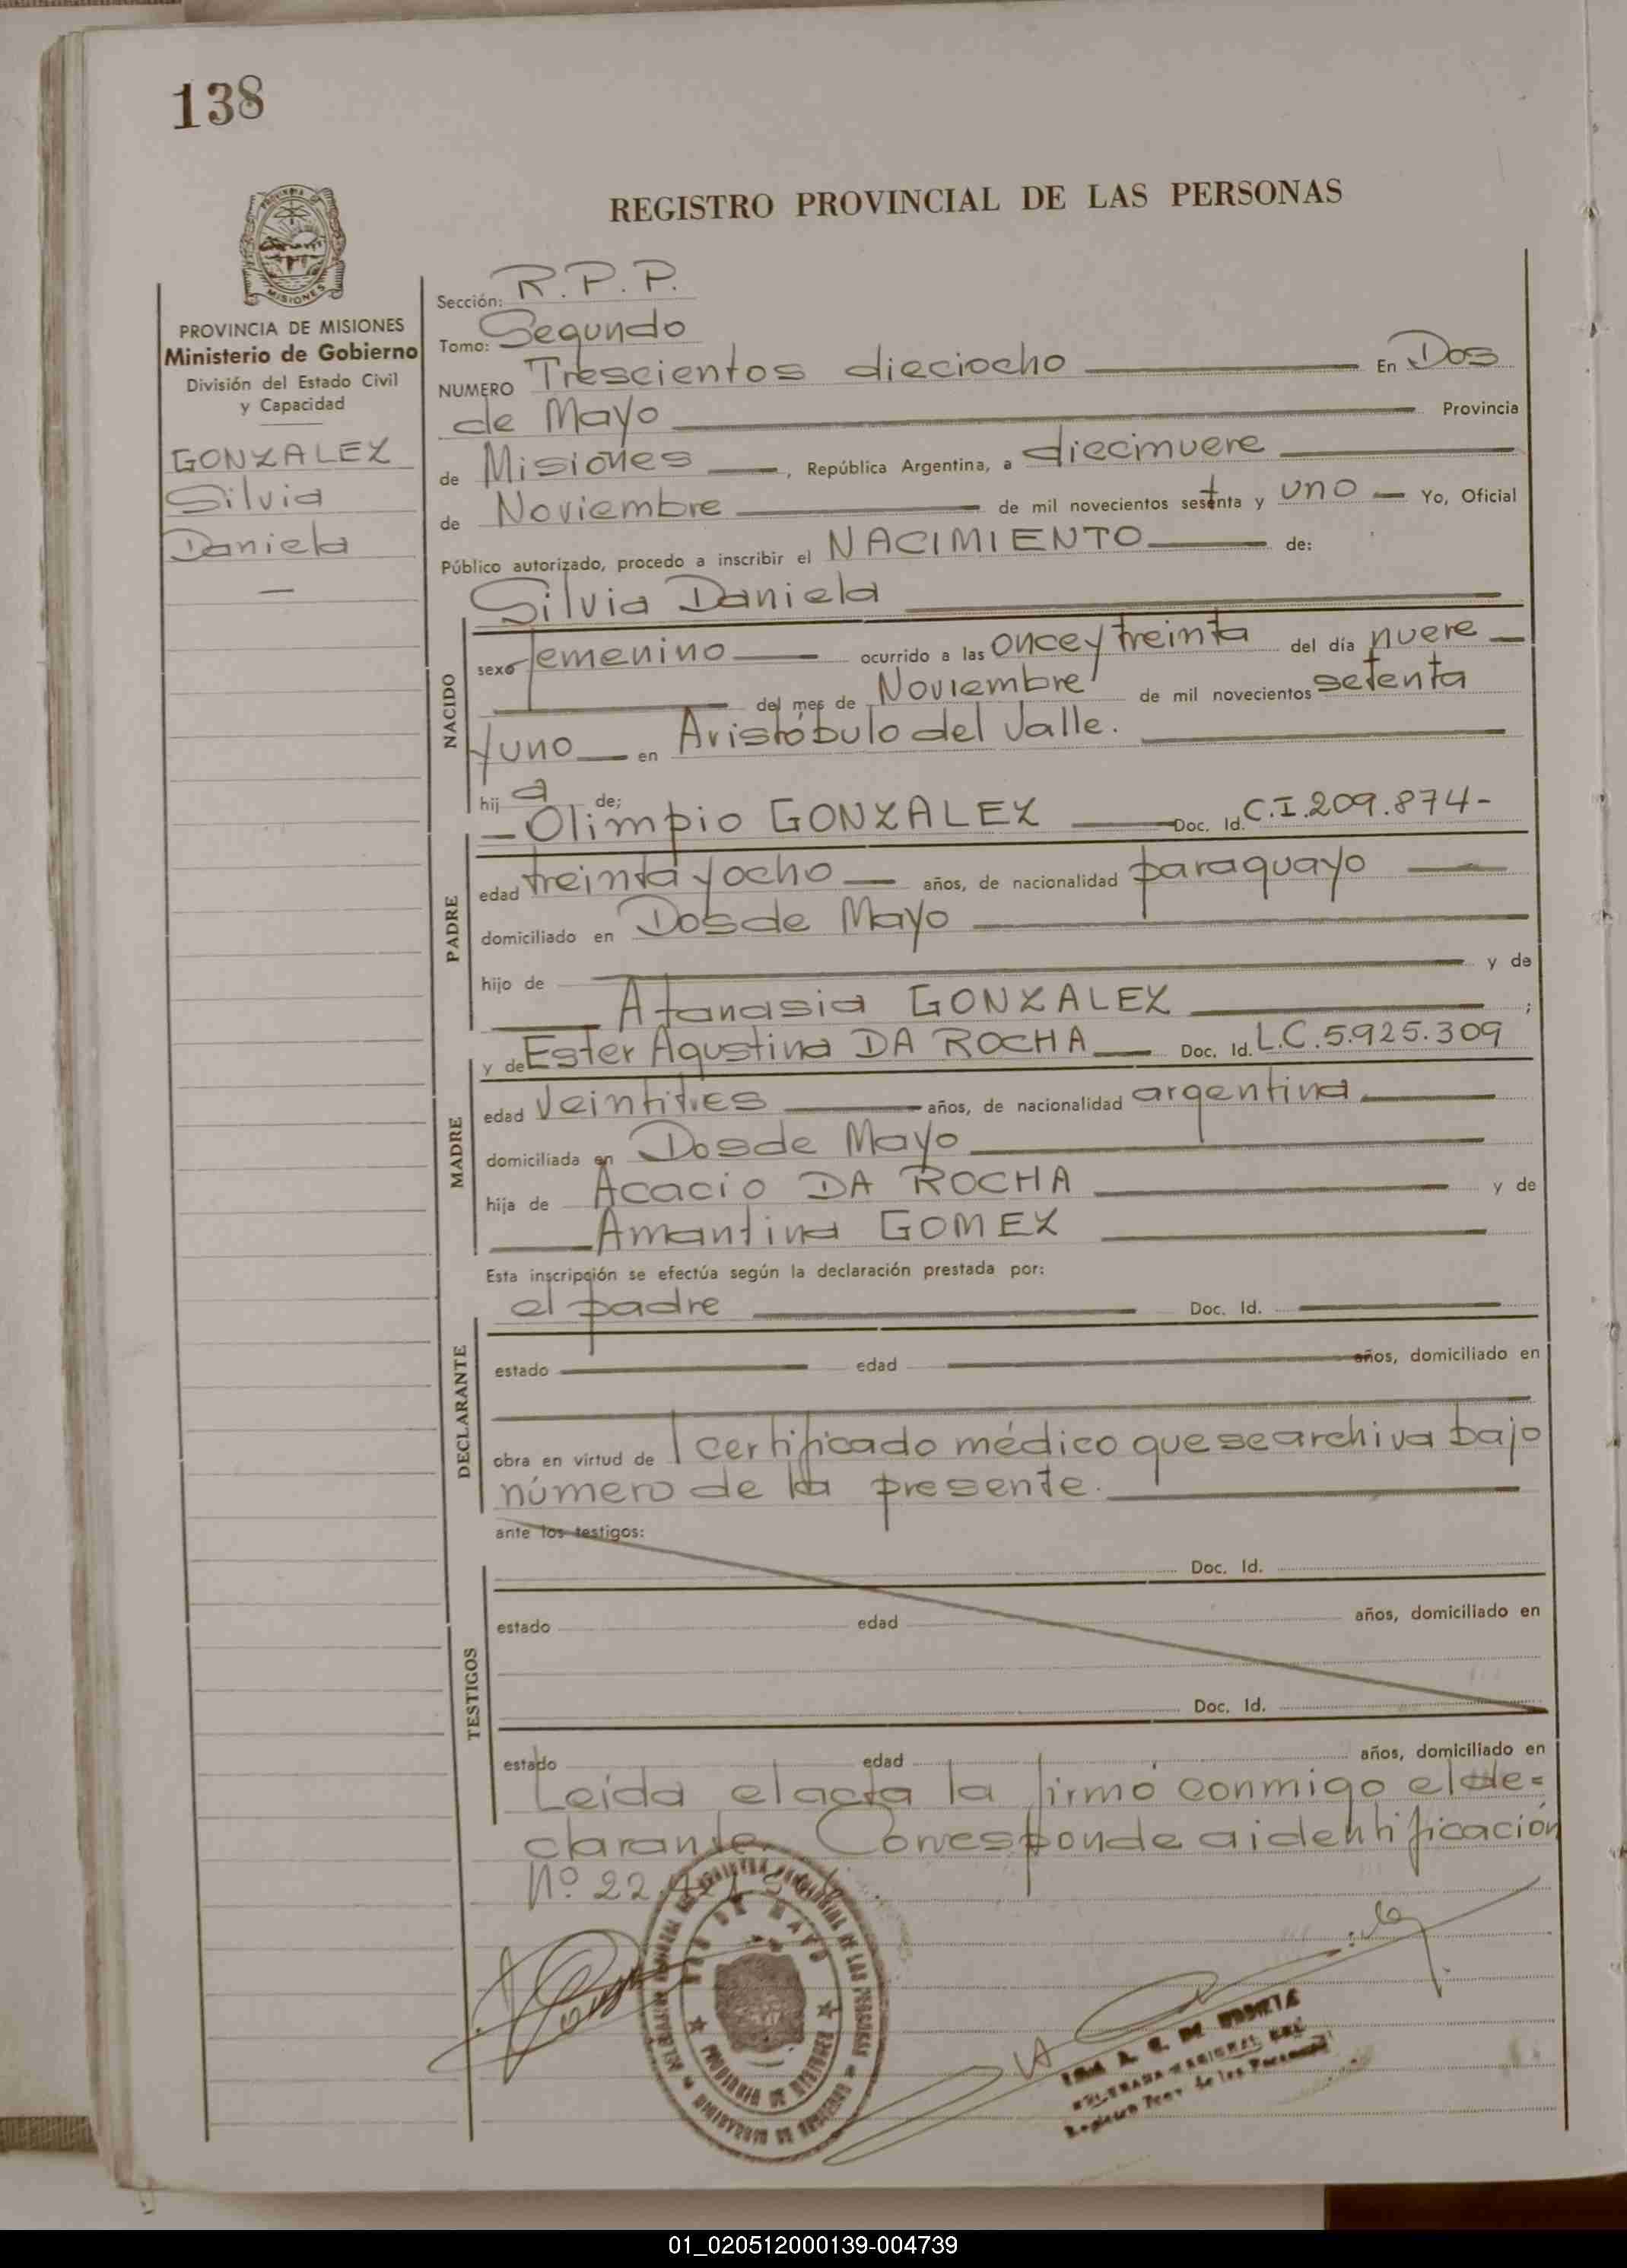 138
REGISTRO PROVINCIAL DE LAS PERSONAS
MISIONES
PROVINCIA DE MISIONES
Ministerio de Gobierno
División del Estado Civil
y Capacidad
GONZALEZ
Silvia
Daniela
Sección: R.P.P.
Tomo: Segundo
NUMERO Trescientos dieciocho En Dos
de Mayo Provincia
de Misiones, República Argentina, a diecinueve
de Noviembre de mil novecientos setenta y uno Yo, Oficial
Público autorizado, procedo a inscribir el NACIMIENTO de:
Silvia Daniela
NACIDO
sexo femenino ocurrido a las once y treinta del día nueve
del mes de Noviembre de mil novecientos setenta
y uno en Aristóbulo del Valle.
hij a de:
Olimpio GONZALEZ Doc. Id. C.I.209.874-
PADRE
edad treinta y ocho años, de nacionalidad paraguayo
domiciliado en Dos de Mayo
hijo de y de
Atanasia GONZALEZ ;
y de Ester Agustina DA ROCHA Doc. Id. L.C.5.925.309
MADRE
edad veintitres años, de nacionalidad argentina
domiciliada en Dos de Mayo
hija de Acacio DA ROCHA y de
Amantina GOMEZ
Esta inscripción se efectúa según la declaración prestada por:
el padre Doc. Id.
DECLARANTE
estado edad años, domiciliado en
obra en virtud de 1 certificado médico que se archiva bajo
número de la presente.
ante los testigos:
Doc. Id.
TESTIGOS
estado edad años, domiciliado en
Doc. Id.
estado edad años, domiciliado en
Leida el acta la firmó conmigo el de=
clarante. Corresponde a identificación
Nº 22.
DOS DE MAYO
PROVINCIA DE MISIONES
MINISTERIO DE GOBIERNO
DE LAS PERSONAS
01_020512000139-004739